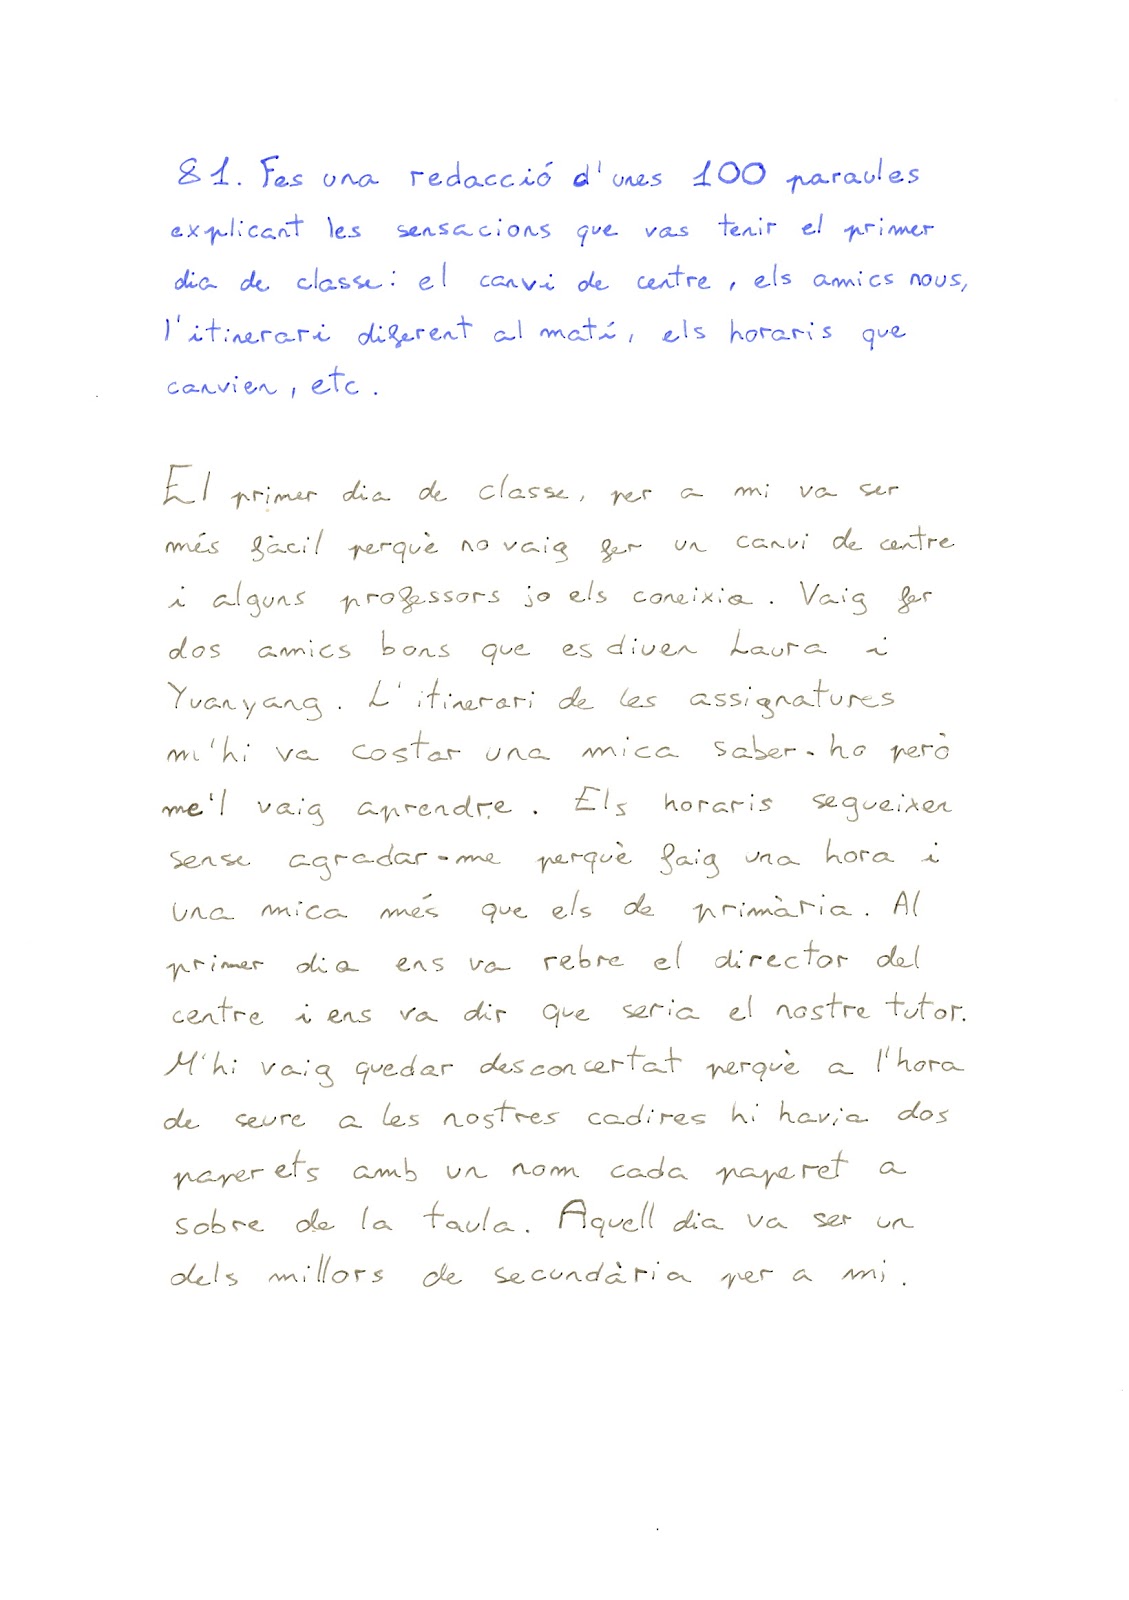 81. Fes una redacció d'unes 100 paraules
explicant les sensacions que vas tenir el primer
dia de classe: el canvi de centre, els amics nous,
l'itinerari diferent al matí, els horaris que
canvien, etc.
El primer dia de classe, per a mi va ser
més fàcil perquè no vaig fer un canvi de centre
i alguns professors jo els coneixia. Vaig fer
dos amics bons que es diuen Laura i
Yuanyang. L'itinerari de les assignatures
m'hi va costar una mica saber-ho però
me'l vaig aprendre. Els horaris segueixen
sense agradar-me perquè faig una hora i
una mica més que els de primària. Al
primer dia ens va rebre el director del
centre i ens va dir que seria el nostre tutor.
M'hi vaig quedar desconcertat perquè a l'hora
de seure a les nostres cadires hi havia dos
paperets amb un nom cada paperet a
sobre de la taula. Aquell dia va ser un
dels millors de secundària per a mi.